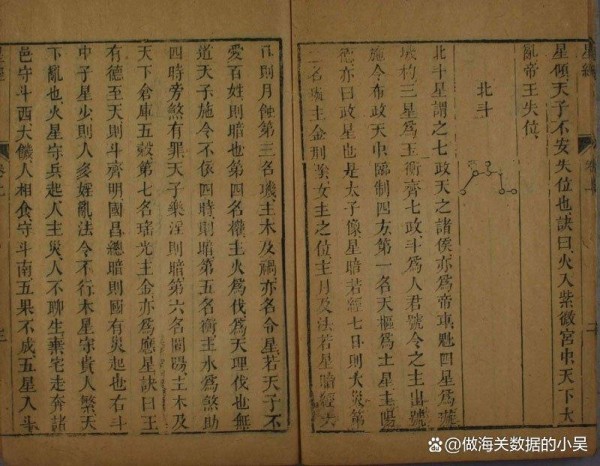 星經
卷上
二
星傾天子不安失位也訣曰火入紫微宮中天下大
亂帝王失位
北斗
北斗星謂之七政天之諸侯亦爲帝車魁四星爲璇
璣杓三星爲玉衡齊七政斗爲人君號令之主出號
施令布政天中臨制四方第一名天樞爲土星主陽
德亦曰政星也是太子像星暗若經七日則大災第
二名璇主金刑陰女主之位主月及法若星暗經六
日則月蝕第三名璣主木及禍亦名令星若天子不
愛百姓則暗也第四名權主火爲伐爲天理伐也無
道天子施令不依四時則暗第五名衡主水爲煞助
四時旁煞有罪天子樂淫則暗第六名闓陽主木及
天下倉庫五穀第七名瑤光主金亦爲應星訣曰王
有德至天則斗齊明國昌總暗則國有災起也右斗
中子星少則人多婬亂法令不行木星守貴人繫天
下亂也火星守兵起人主災人不聊生棄宅走奔諸
邑守斗西大饑人相食守斗南五果不成五星入斗
星經
卷上
三
@做海关数据的小吴